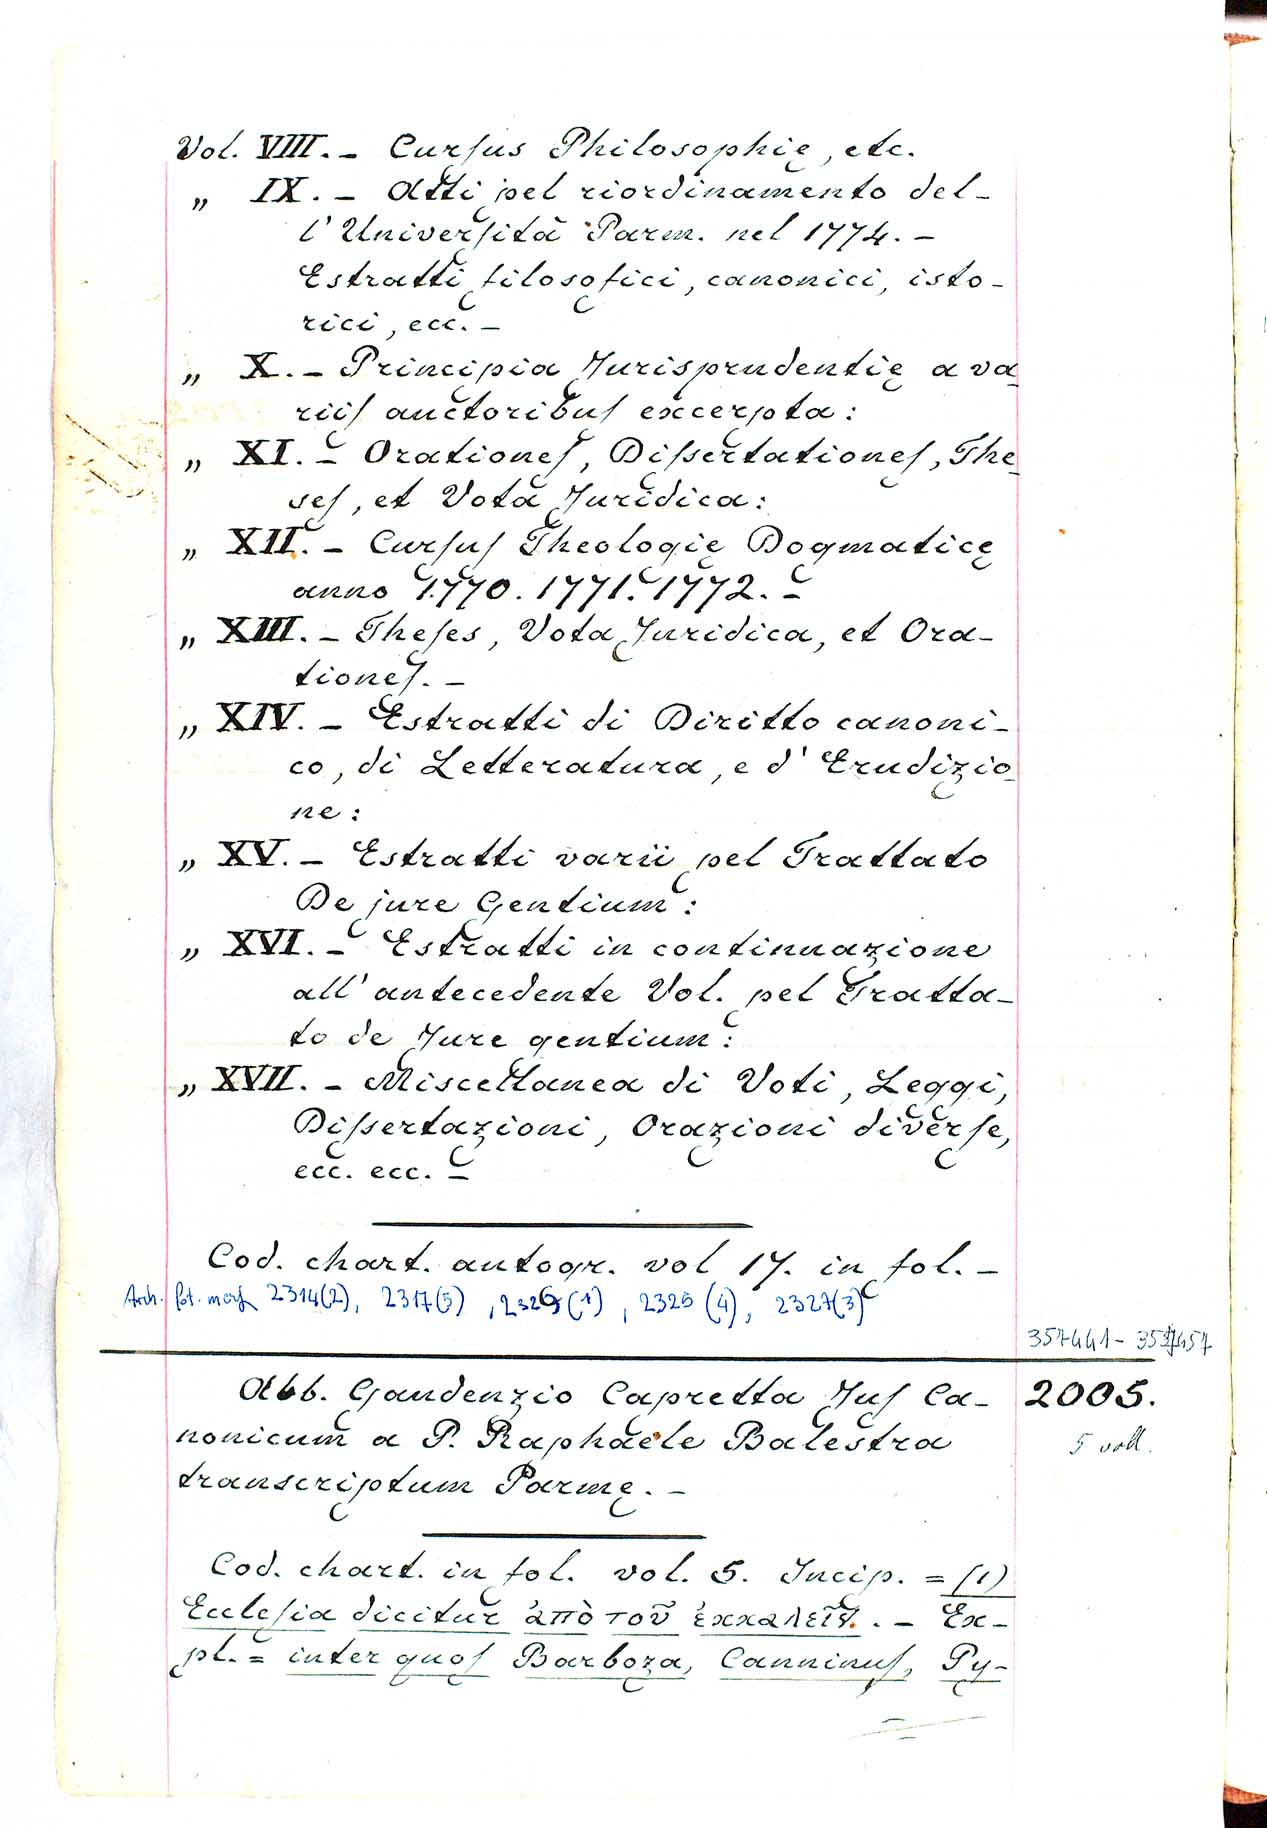 Vol. VIII. – Curſus Philosophię, etc.
„ IX. – Atti pel riordinamento del-
l'Univerſità Parm. nel 1774. –
Estratti filosofici, canonici, isto-
rici, ecc. –
„ X. – Principia Jurisprudentię a va-
riiſ auctoribuſ excerpta:
„ XI. – Orationeſ, Diſsertationeſ, The-
seſ, et Vota Juridica:
„ XII. – Curſuſ Theologię Dogmaticę
anno 1770. 1771. 1772. –
„ XIII. – Theſes, Vota Juridica, et Ora-
tioneſ. –
„ XIV. – Estratti di Diritto canoni-
co, di Letteratura, e d'Erudizio-
ne:
„ XV. – Estratti varii pel Trattato
De jure Gentium:
„ XVI. – Estratti in continuazione
all'antecedente Vol. pel Tratta-
to de Jure gentium:
„ XVII. – Miscellanea di Voti, Leggi,
Diſsertazioni, Orazioni diverſe,
ecc. ecc. –
Cod. chart. autogr. vol 17. in fol. –
Arch. fot. 2314(2), 2317(5), (1), 2325 (4), 2327(3)
357441 - 357457
Abb. Gaudenzio Capretta Juſ Ca- 2005.
nonicum a P. Raphaele Balestra 5 voll.
transcriptum Parmę. –
Cod. chart. in fol. vol. 5. Incip. = (1)
Eccleſia dicitur ἀπὸ τοῦ ἐκκαλεῖν. – Ex-
pl. = inter quoſ Barboza, Canninuſ, Py-